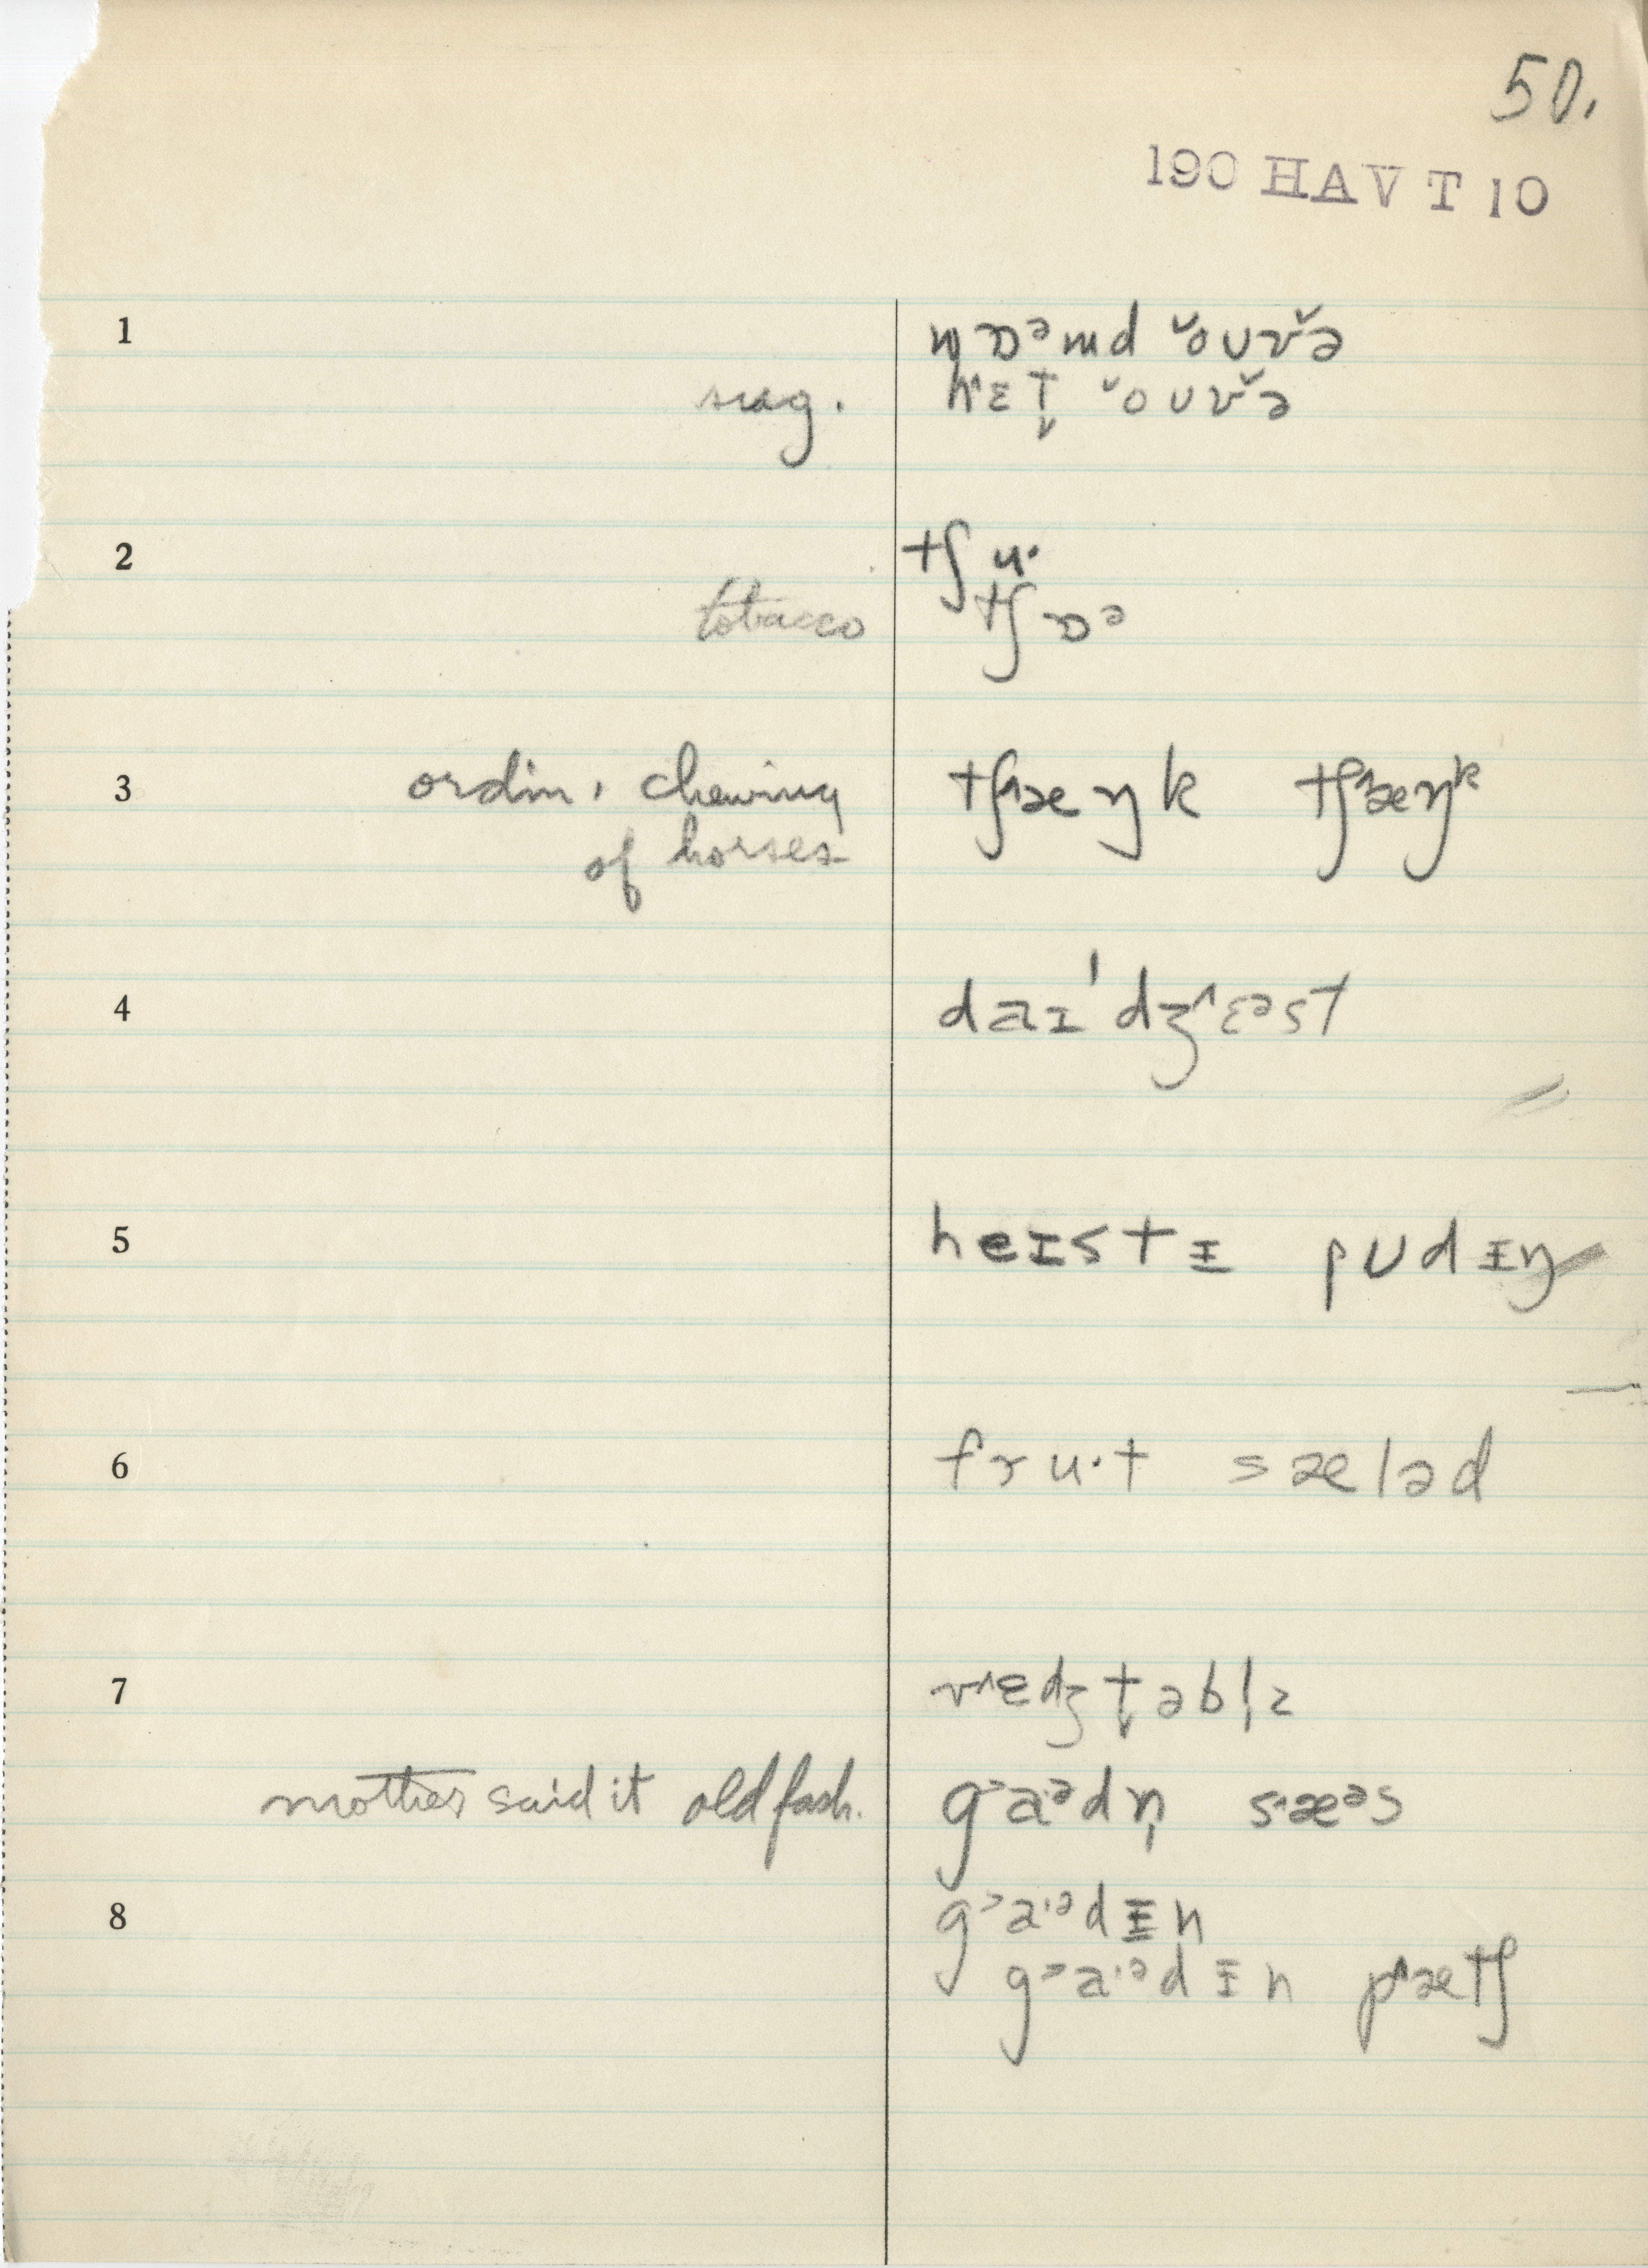 50.
190 HAVT10
1 wɒᵊmd ˇoʊvˇə
sug. h˄ɛt̬ ˇoʊvˇə
2 tʃu·
tobacco tʃɒᵊ
3 ordin. chewing tʃ˄æŋk tʃ˄æŋᵏ
of horses
4 daɪˈdʒ˄ɛᵊst
5 heɪstɪ pʊdɪŋ
6 fru·t sæləd
7 v˄ɛdʒt̬əbl̩z
mother said it old fash. g˃a·ᵊdn̩ s˄æᵊs
8 g˃a·ᵊdɪn
g˃a·ᵊdɪn p˄ætʃ